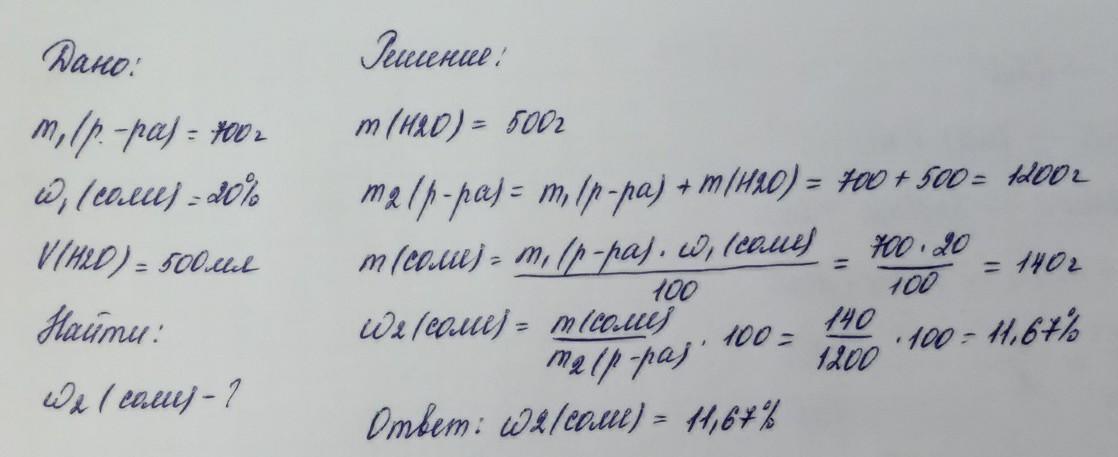 Дано:
m1(р.-ра) = 700г
ω1(соли) = 20%
V(H2O) = 500мл
Найти:
ω2(соли) - ?
Решение:
m(H2O) = 500г
m2(р-ра) = m1(р-ра) + m(H2O) = 700 + 500 = 1200г
m(соли) = m1(р-ра) · ω1(соли) / 100 = 700 · 20 / 100 = 140г
ω2(соли) = m(соли) / m2(р-ра) · 100 = 140 / 1200 · 100 = 11,67%
Ответ: ω2(соли) = 11,67%